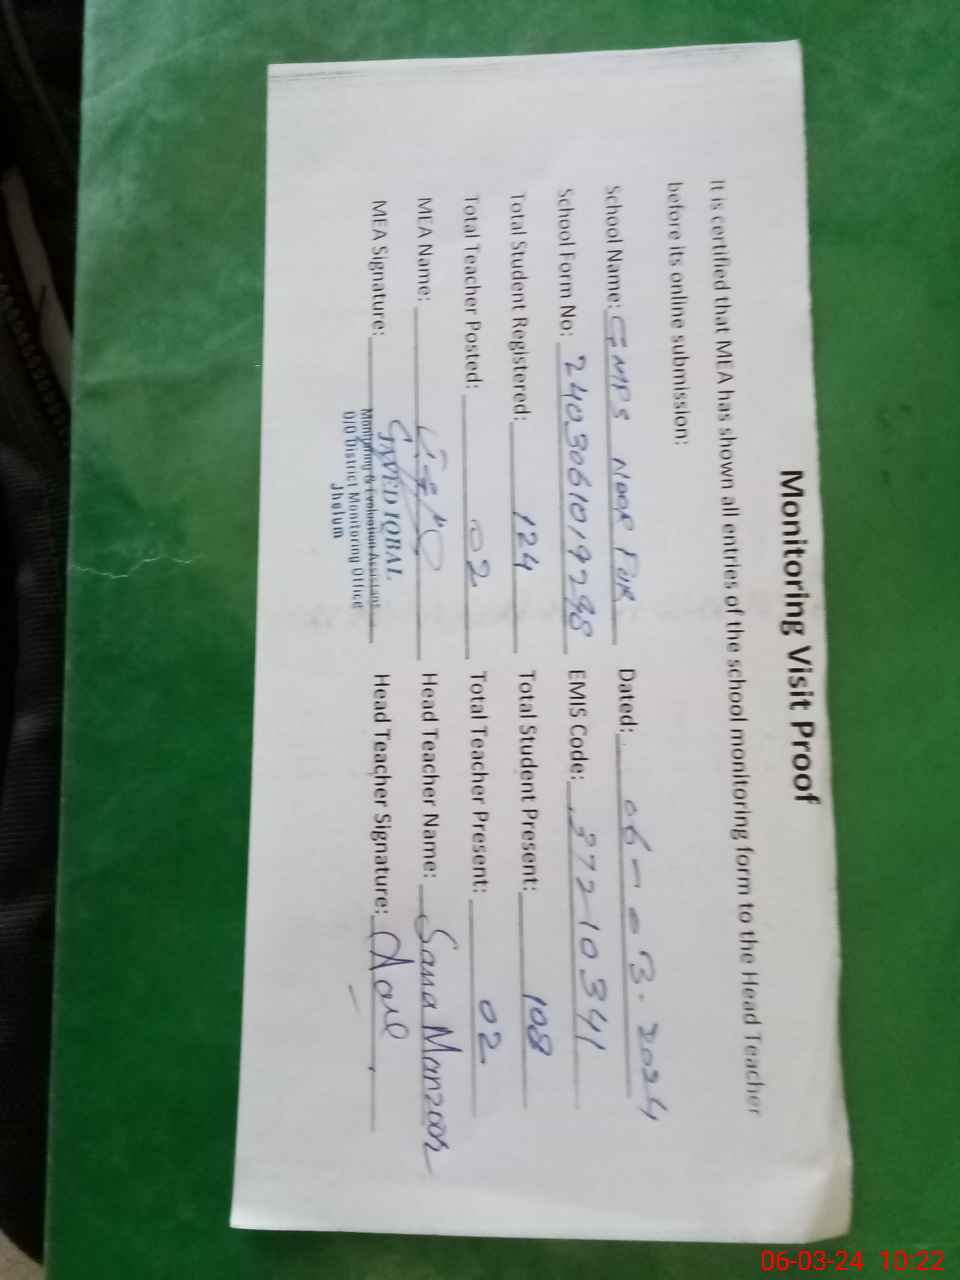 Monitoring Visit Proof
It is certified that MEA has shown all entries of the school monitoring form to the Head Teacher
before its online submission:
School Name: GMPS NOOR PUR Dated: 06-03-2024
School Form No: 2403061019298 EMIS Code: 37210341
Total Student Registered: 124 Total Student Present: 108
Total Teacher Posted: 02 Total Teacher Present: 02
MEA Name: Head Teacher Name: Sana Manzoor
MEA Signature: Head Teacher Signature:
JAVED IQBAL
Monitoring & Evaluation Assistant
O/O District Monitoring Office
Jhelum
06-03-24 10:22